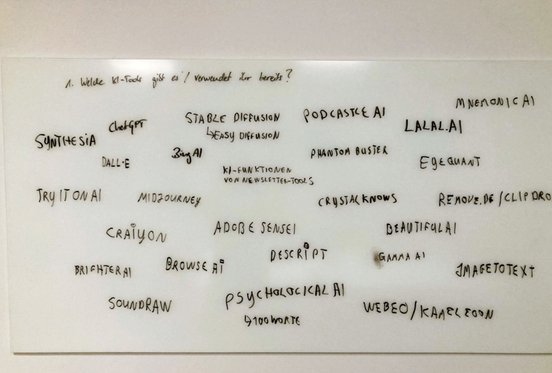 1. Welche KI-Tools gibt es / verwendet ihr bereits?
MNEMONIC AI
STABLE DIFFUSION
PODCASTLE AI
ChatGPT
↳EASY DIFFUSION
LALAL.AI
SYNTHESIA
DALL-E
Bing AI
PHANTOM BUSTER
EYEQUANT
KI-FUNKTIONEN
VON NEWSLETTER-TOOLS
TRY IT ON AI
MIDJOURNEY
CRYSTALKNOWS
REMOVE.BG/CLIPDRO
CRAIYON
ADOBE SENSEI
BEAUTIFUL AI
DESCRIPT
GAMMA AI
BRIGHTER AI
BROWSE AI
IMAGETOTEXT
SOUNDRAW
PSYCHOLOGICAL AI
↳100WORTE
WEBEO/KAMELEOON